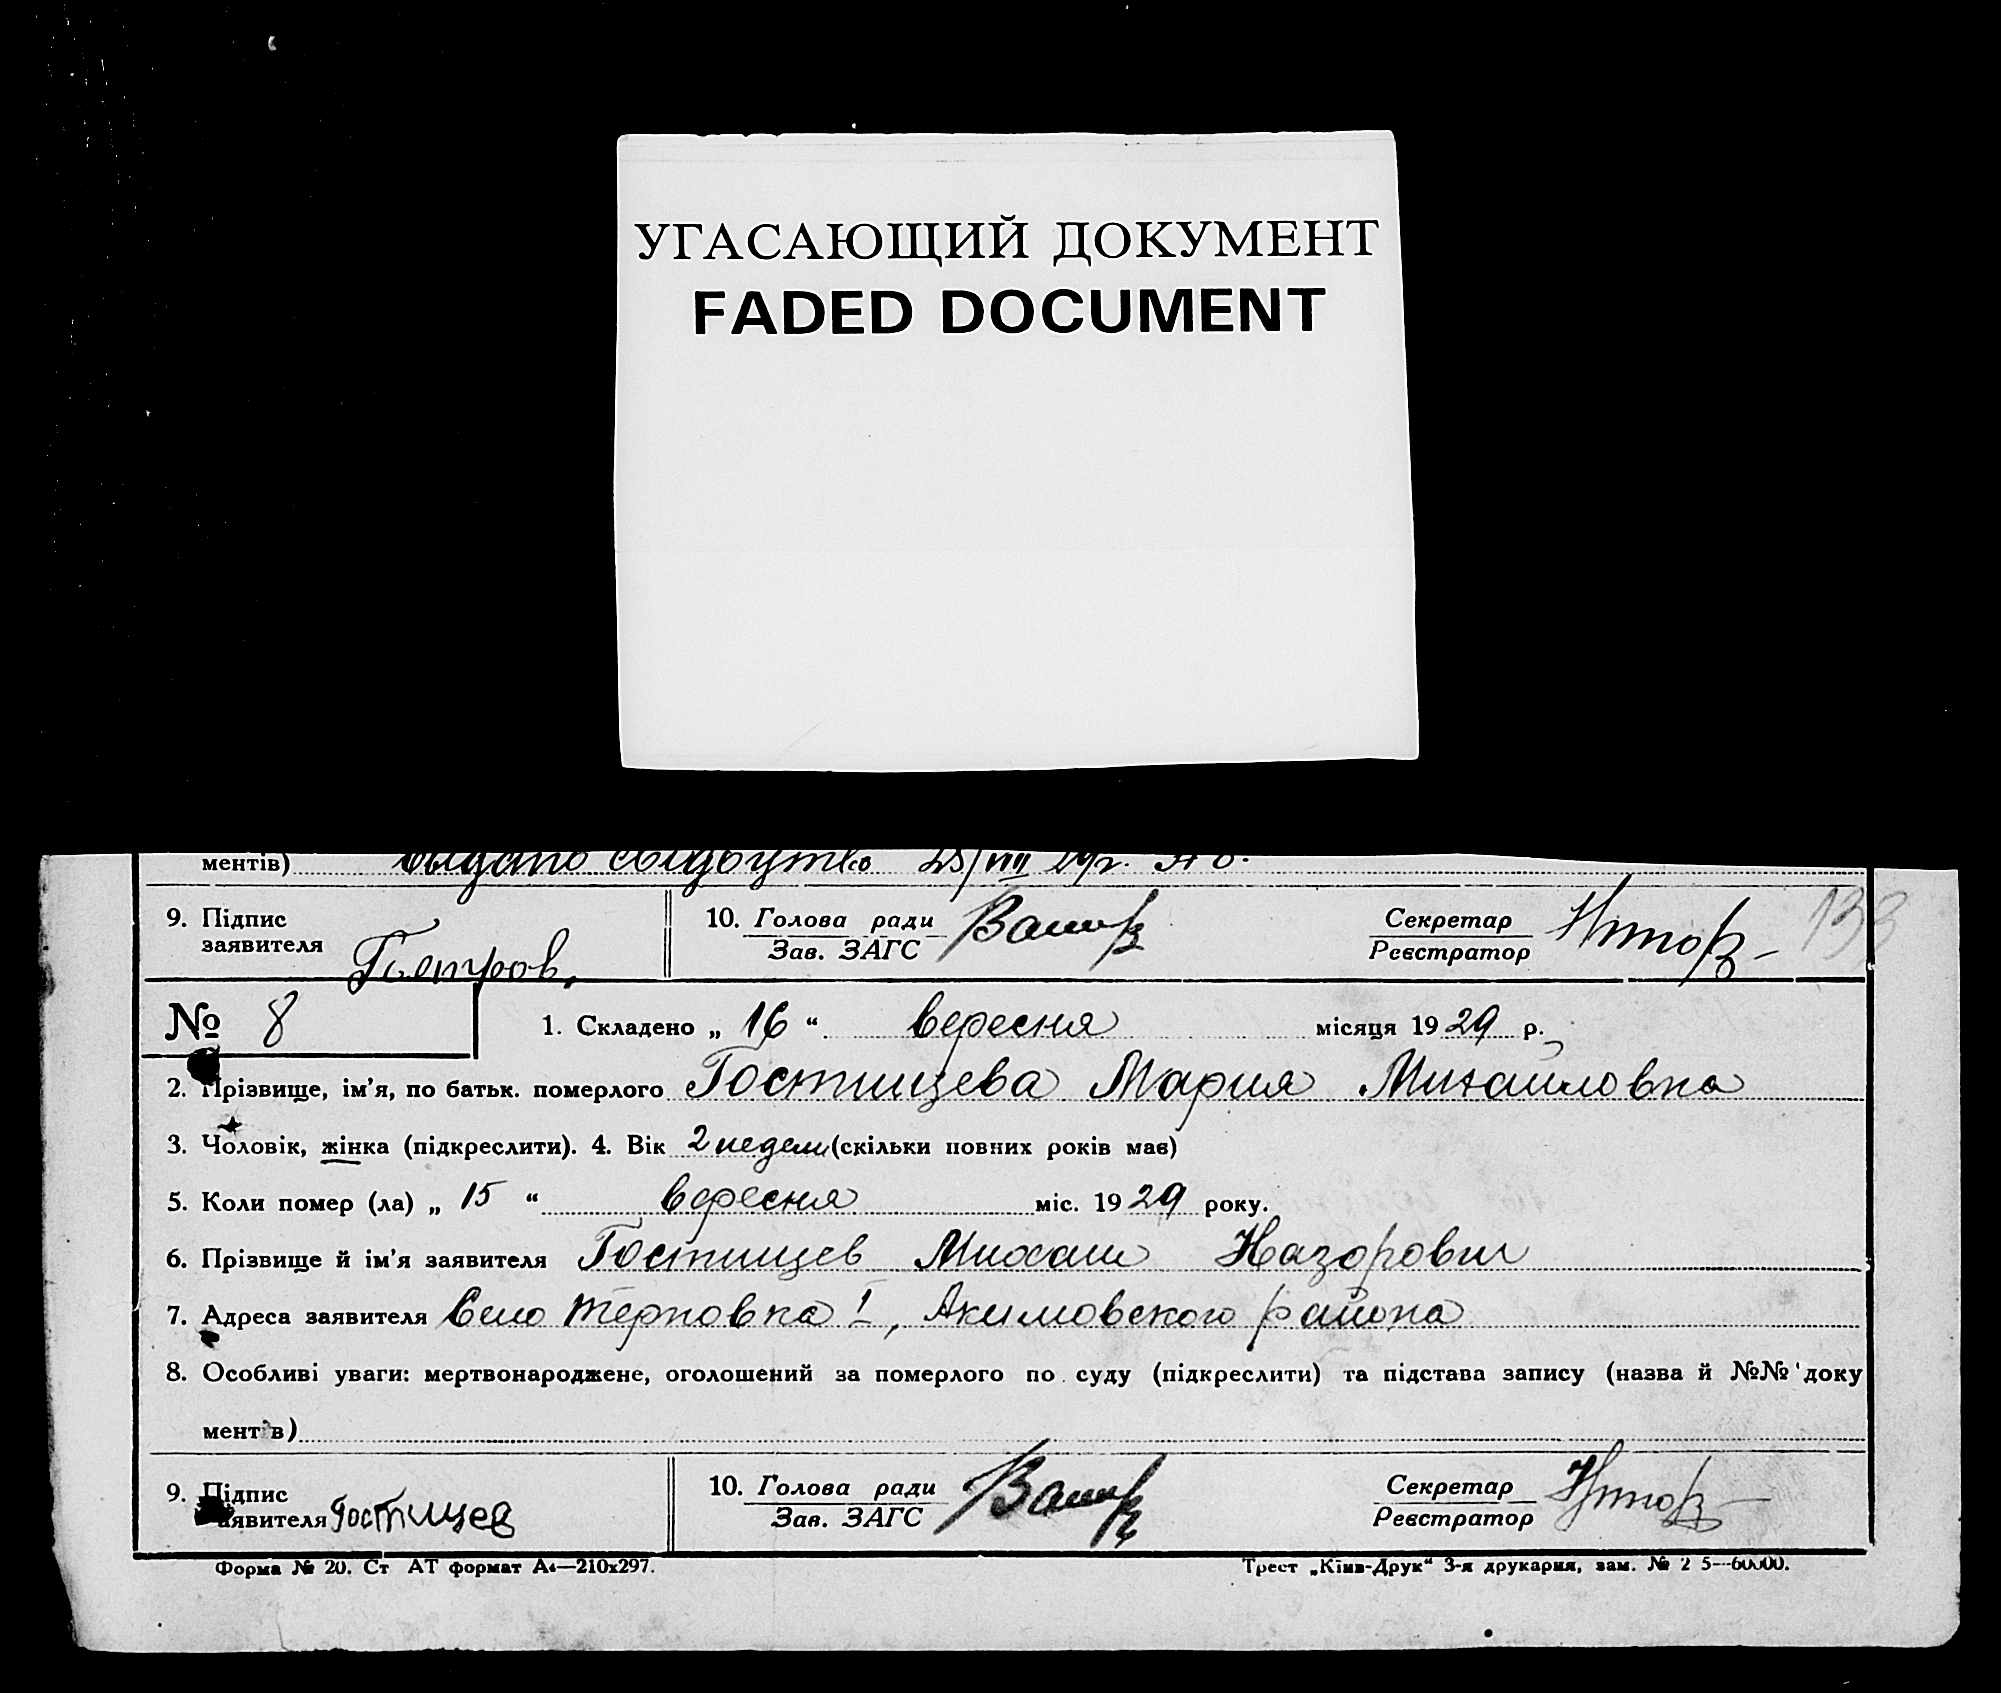 УГАСАЮЩИЙ ДОКУМЕНТ
FADED DOCUMENT
ментів) видано свідоцтво 25/VIII 29 г.
9. Підпис заявителя
10. Голова ради
Зав. ЗАГС
Секретар
Реєстратор
133
№ 8
1. Складено „ 16 “ вересня місяця 1929 р.
2. Прізвище, ім’я, по батьк. померлого Гостищева Мария Михаиловна
3. Чоловік, жінка (підкреслити). 4. Вік 2 недели (скільки повних років має)
5. Коли помер (ла) „ 15 “ вересня міс. 1929 року.
6. Прізвище й ім’я заявителя Гостищев Михаил Назорович
7. Адреса заявителя Село Терновка I, Акимовского района
8. Особливі уваги: мертвонароджене, оголошений за померлого по суду (підкреслити) та підстава запису (назва й №№ доку
ментів)
9. Підпис
заявителя Гостищев
10. Голова ради
Зав. ЗАГС
Секретар
Реєстратор
Форма № 20. Ст АТ формат А4—210х297.
Трест „Київ-Друк“ 3-я друкарня, зам. № 2 5—60000.